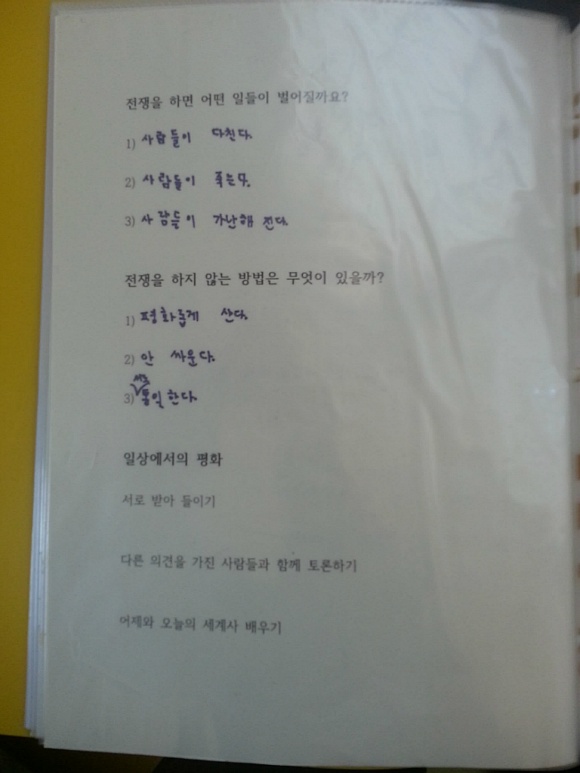 전쟁을 하면 어떤 일들이 벌어질까요?
1) 사람들이 다친다.
2) 사람들이 죽는다.
3) 사람들이 가난해 진다.
전쟁을 하지 않는 방법은 무엇이 있을까?
1) 평화롭게 산다.
2) 안 싸운다.
3) 서로 통일한다.
일상에서의 평화
서로 받아 들이기
다른 의견을 가진 사람들과 함께 토론하기
어제와 오늘의 세계사 배우기